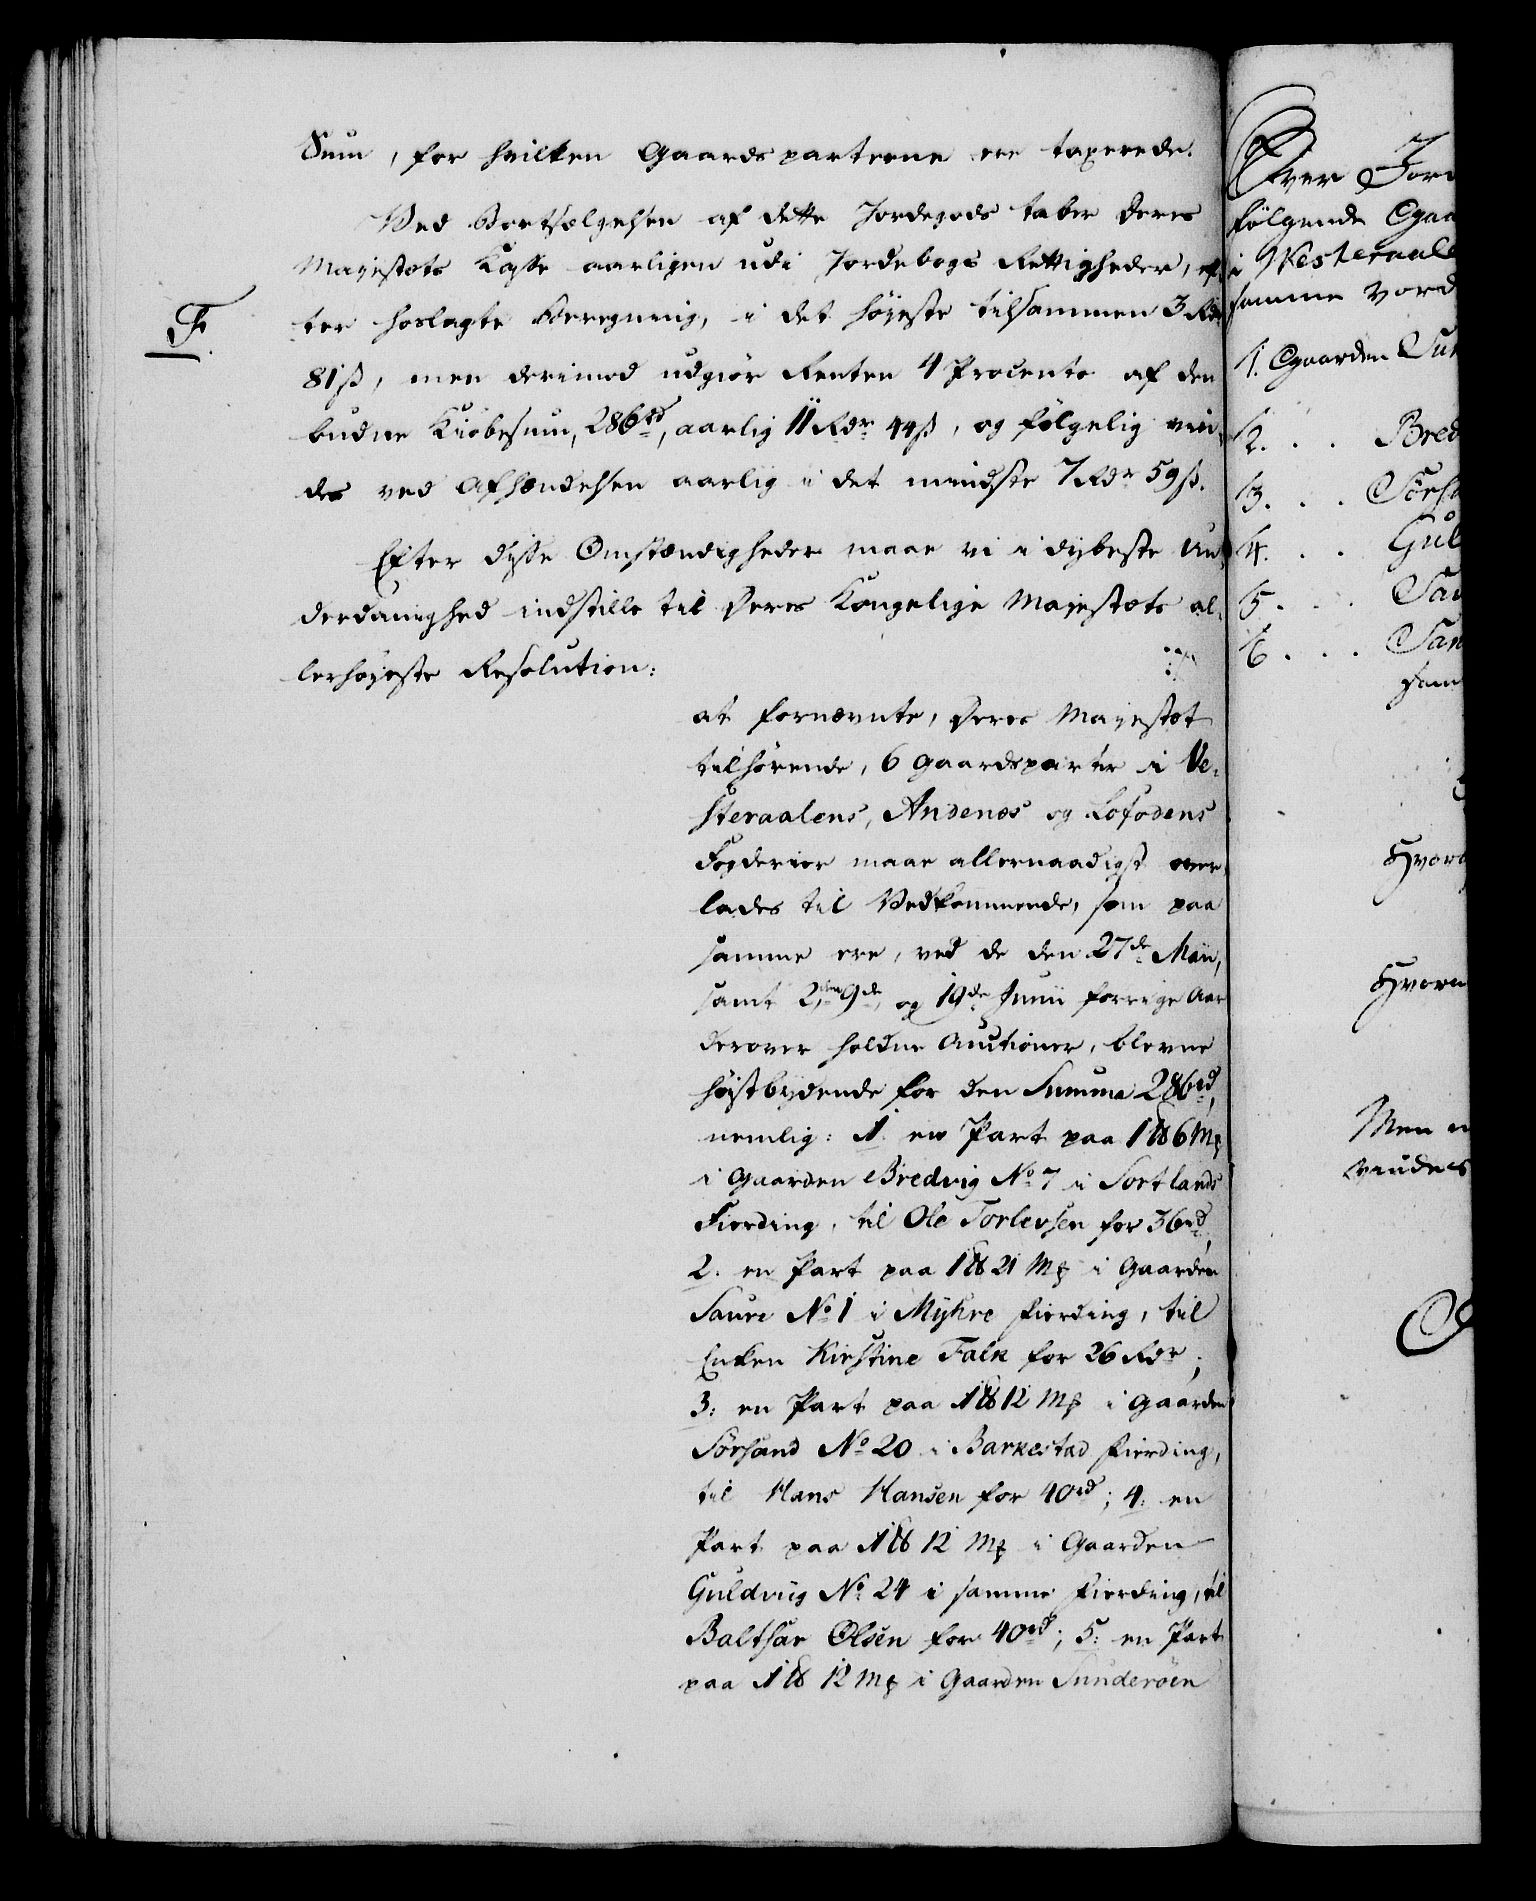 Sum, for hvilken Gaardsparterne ere taxerede.
Ved Bortsælgelsen af dette Jordegods taber Deres
Majestæts Casse aarligen udi Jordebogs Rettigheder, ef-
F.
ter hoslagte Beregning, i det høieste tilsammen 3 Rdr
81 ß, men derimod udgiør Renten 4 Procento af den
budne Kiøbesum, 286 rd, aarlig 11 Rdr 44 ß, og følgelig vin-
des ved Afhændelsen aarlig i det mindste 7 Rdr 59 ß.
Efter disse Omstændigheder maae vi i dybeste Un-
derdanighed indstille til Deres Kongelige Majestæts al-
lerhøjeste Resolution:
at fornævnte, Deres Majestæt
tilhørende, 6 Gaardsparter i Ve-
steraalens, Andenes og Lofodens
Fogderier maae allernaadigst over-
lades til Vedkommende, som paa
samme ere, ved de den 27de Maii,
samt 2den, 9de, og 19de Junii forrige Aar
derover holdne Auctioner, blevne
høistbydende for den Summa 286 rd,
nemlig: 1. en Part paa 1 ℔ 6 Mȝ
i Gaarden Bredvig No 7 i Sortlands
Fierding, til Ole Torlevsen for 36 rd;
2. en Part paa 1 ℔ 21 Mȝ i Gaarden
Saure No 1 i Myhre Fierding, til
Enken Kirstine Falk for 26 Rdr;
3: en Part paa 1 ℔ 12 Mȝ i Gaarden
Sørsand No 20 i Barkestad Fierding,
til Hans Hansen for 40 rd; 4. en
Part paa 1 ℔ 12 Mȝ i Gaarden
Guldviig No 24 i samme Fierding, til
Balthsar Olsen for 40 rd; 5: en Part
paa 1 ℔ 12 Mȝ i Gaarden Sunderöen
Over Jor
følgende Gaa
i Westeraale
samme vord
1. Gaarden Sun
2. . . Bred
3. . . Sørsa
4. . . Gul
5. . . Sau
6. . . San
Hvor
Hvor
Men
vindes